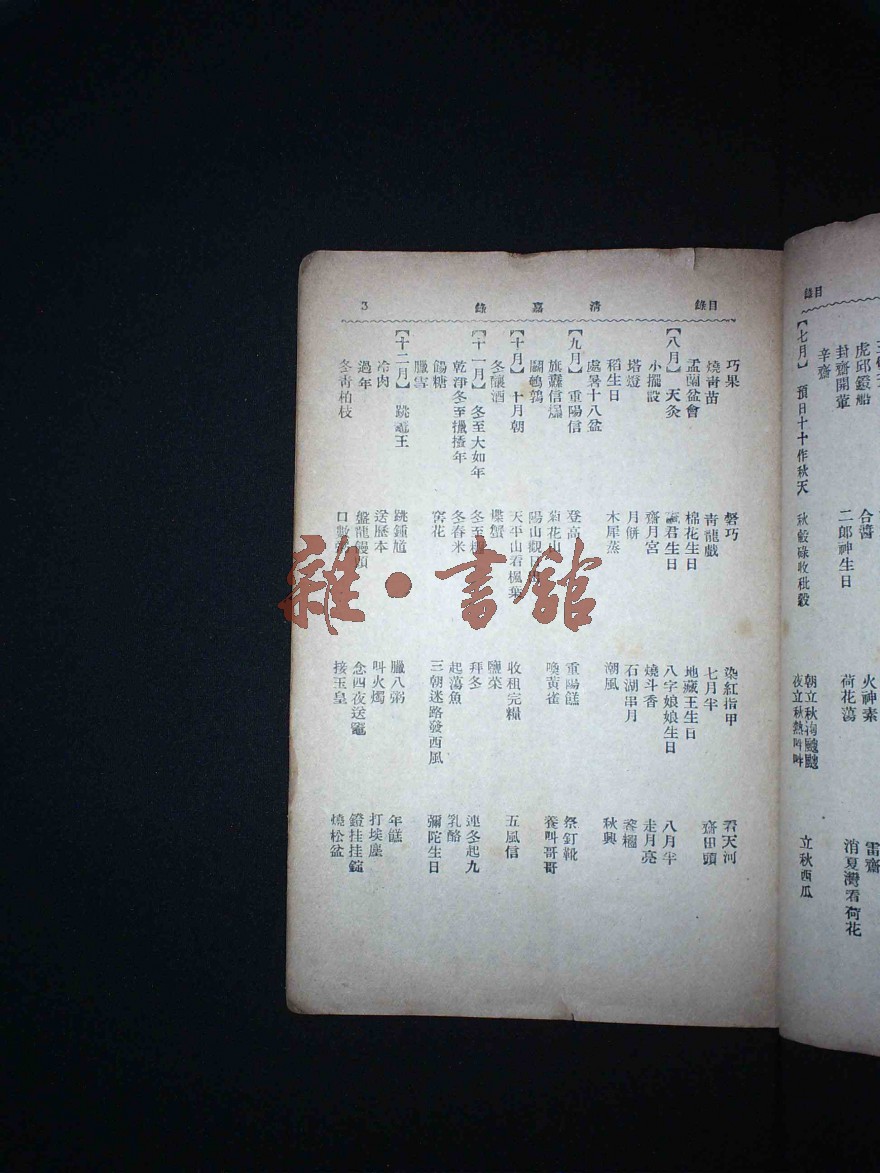 錄目
辛齋
封齋開葷 二郎神生日 荷花蕩 消夏灣看荷花
虎邱鐙船 合醬 火神素 雷齋
【七月】 預日十十作秋天 秋毂碌收秕穀 朝立秋渹飍飍 夜立秋熱吽吽 立秋西瓜
目錄 清嘉錄 3
巧果 磬巧 染紅指甲 看天河
燒青苗 青龍戲 七月半 齋田頭
盂蘭盆會 棉花生日 地藏王生日
【八月】 天灸 竈君生日 八字娘娘生日 八月半
小擺設 齋月宮 燒斗香 走月亮
塔燈 月餅 石湖串月 餈糰
稻生日 木犀蒸 潮風 秋興
處暑十八盆
【九月】 重陽信 登高 重陽餻 祭釘靴
旗纛信爆 菊花山 喚黃雀 養叫哥哥
鬭鵪鶉 陽山觀日
【十月】 十月朝 天平山看楓葉 收租完糧 五風信
冬釀酒 煠蟹 鹽菜
【十一月】 冬至大如年 冬至 拜冬 連冬起九
乾淨冬至邋遢年 冬舂米 起蕩魚 乳酪
餳糖 窖花 三朝迷路發西風 彌陀生日
臘雪
【十二月】 跳竈王 跳鍾馗 臘八粥 年餻
冷肉 送歷本 叫火燭 打埃塵
過年 盤龍饅頭 念四夜送竈 鐙挂挂錠
冬青柏枝 口數 接玉皇 燒松盆
雜·書館